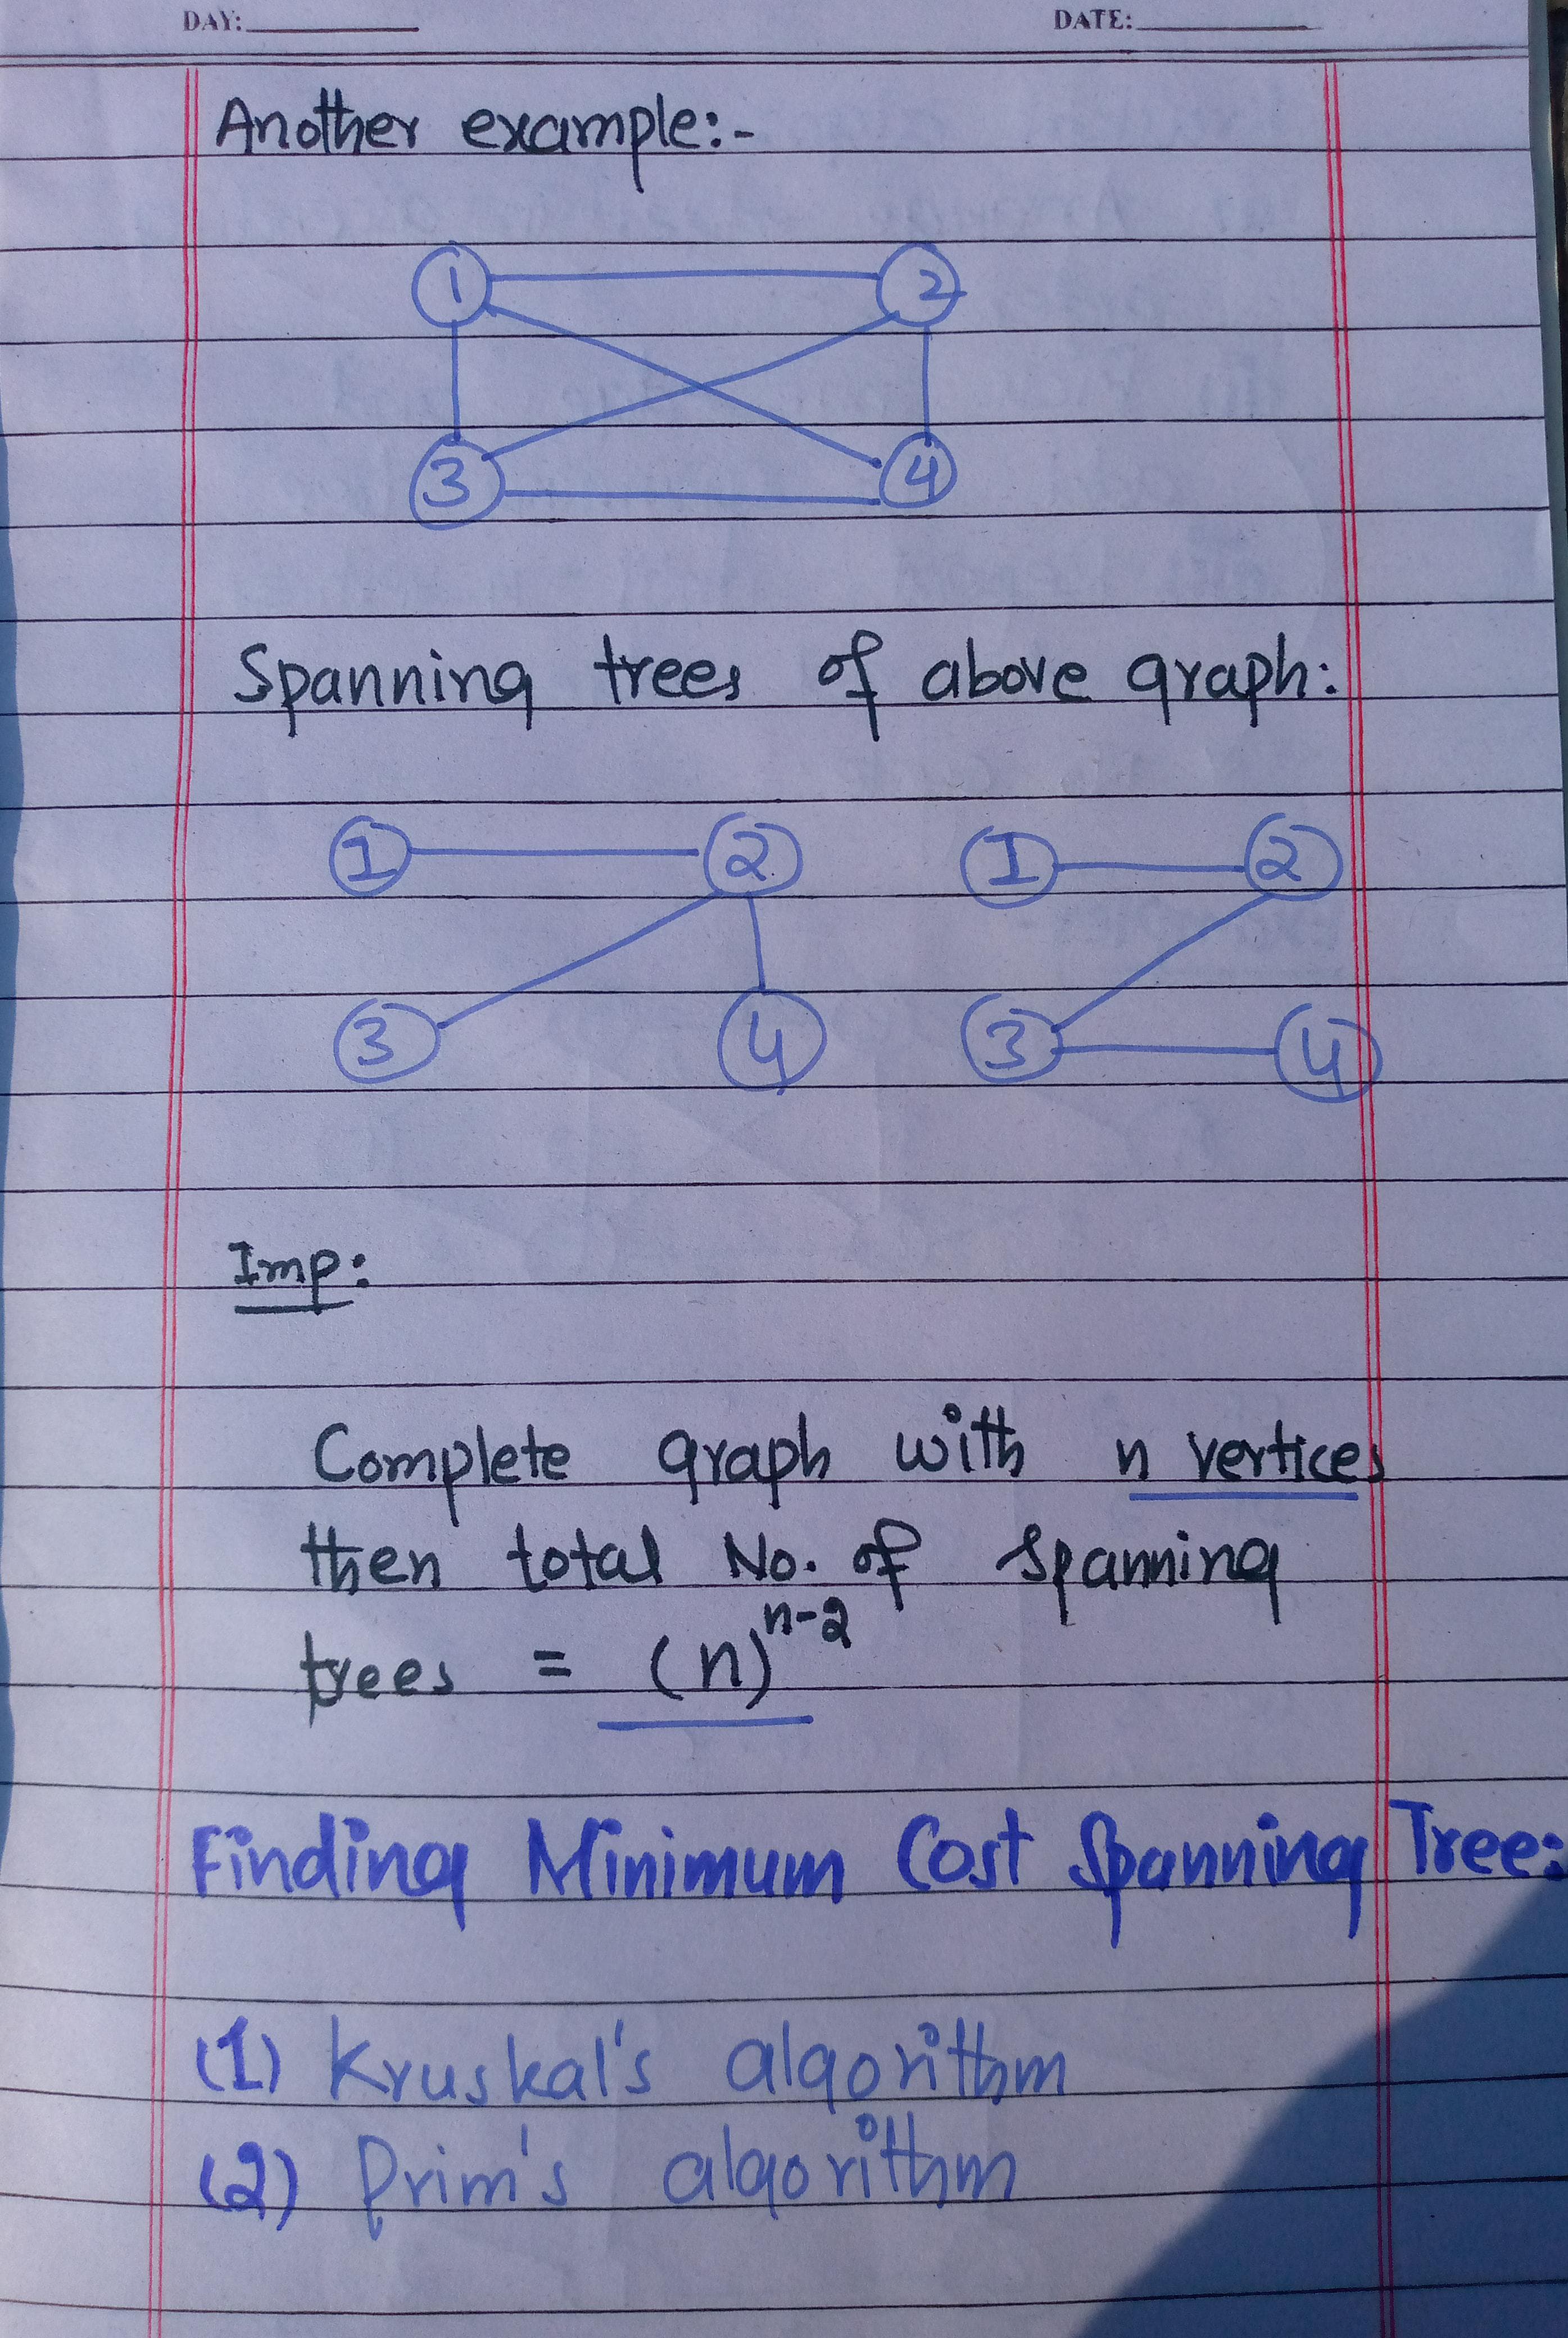 DAY: DATE:
Another example:-
1 2
3 4
Spanning trees of above graph:
1 2 1 2
3 4 3 4
Imp:
Complete graph with n vertices
then total No. of spanning
trees = (n)^{n-2}
Finding Minimum Cost Spanning Tree:
(1) Kruskal's algorithm
(2) Prim's algorithm